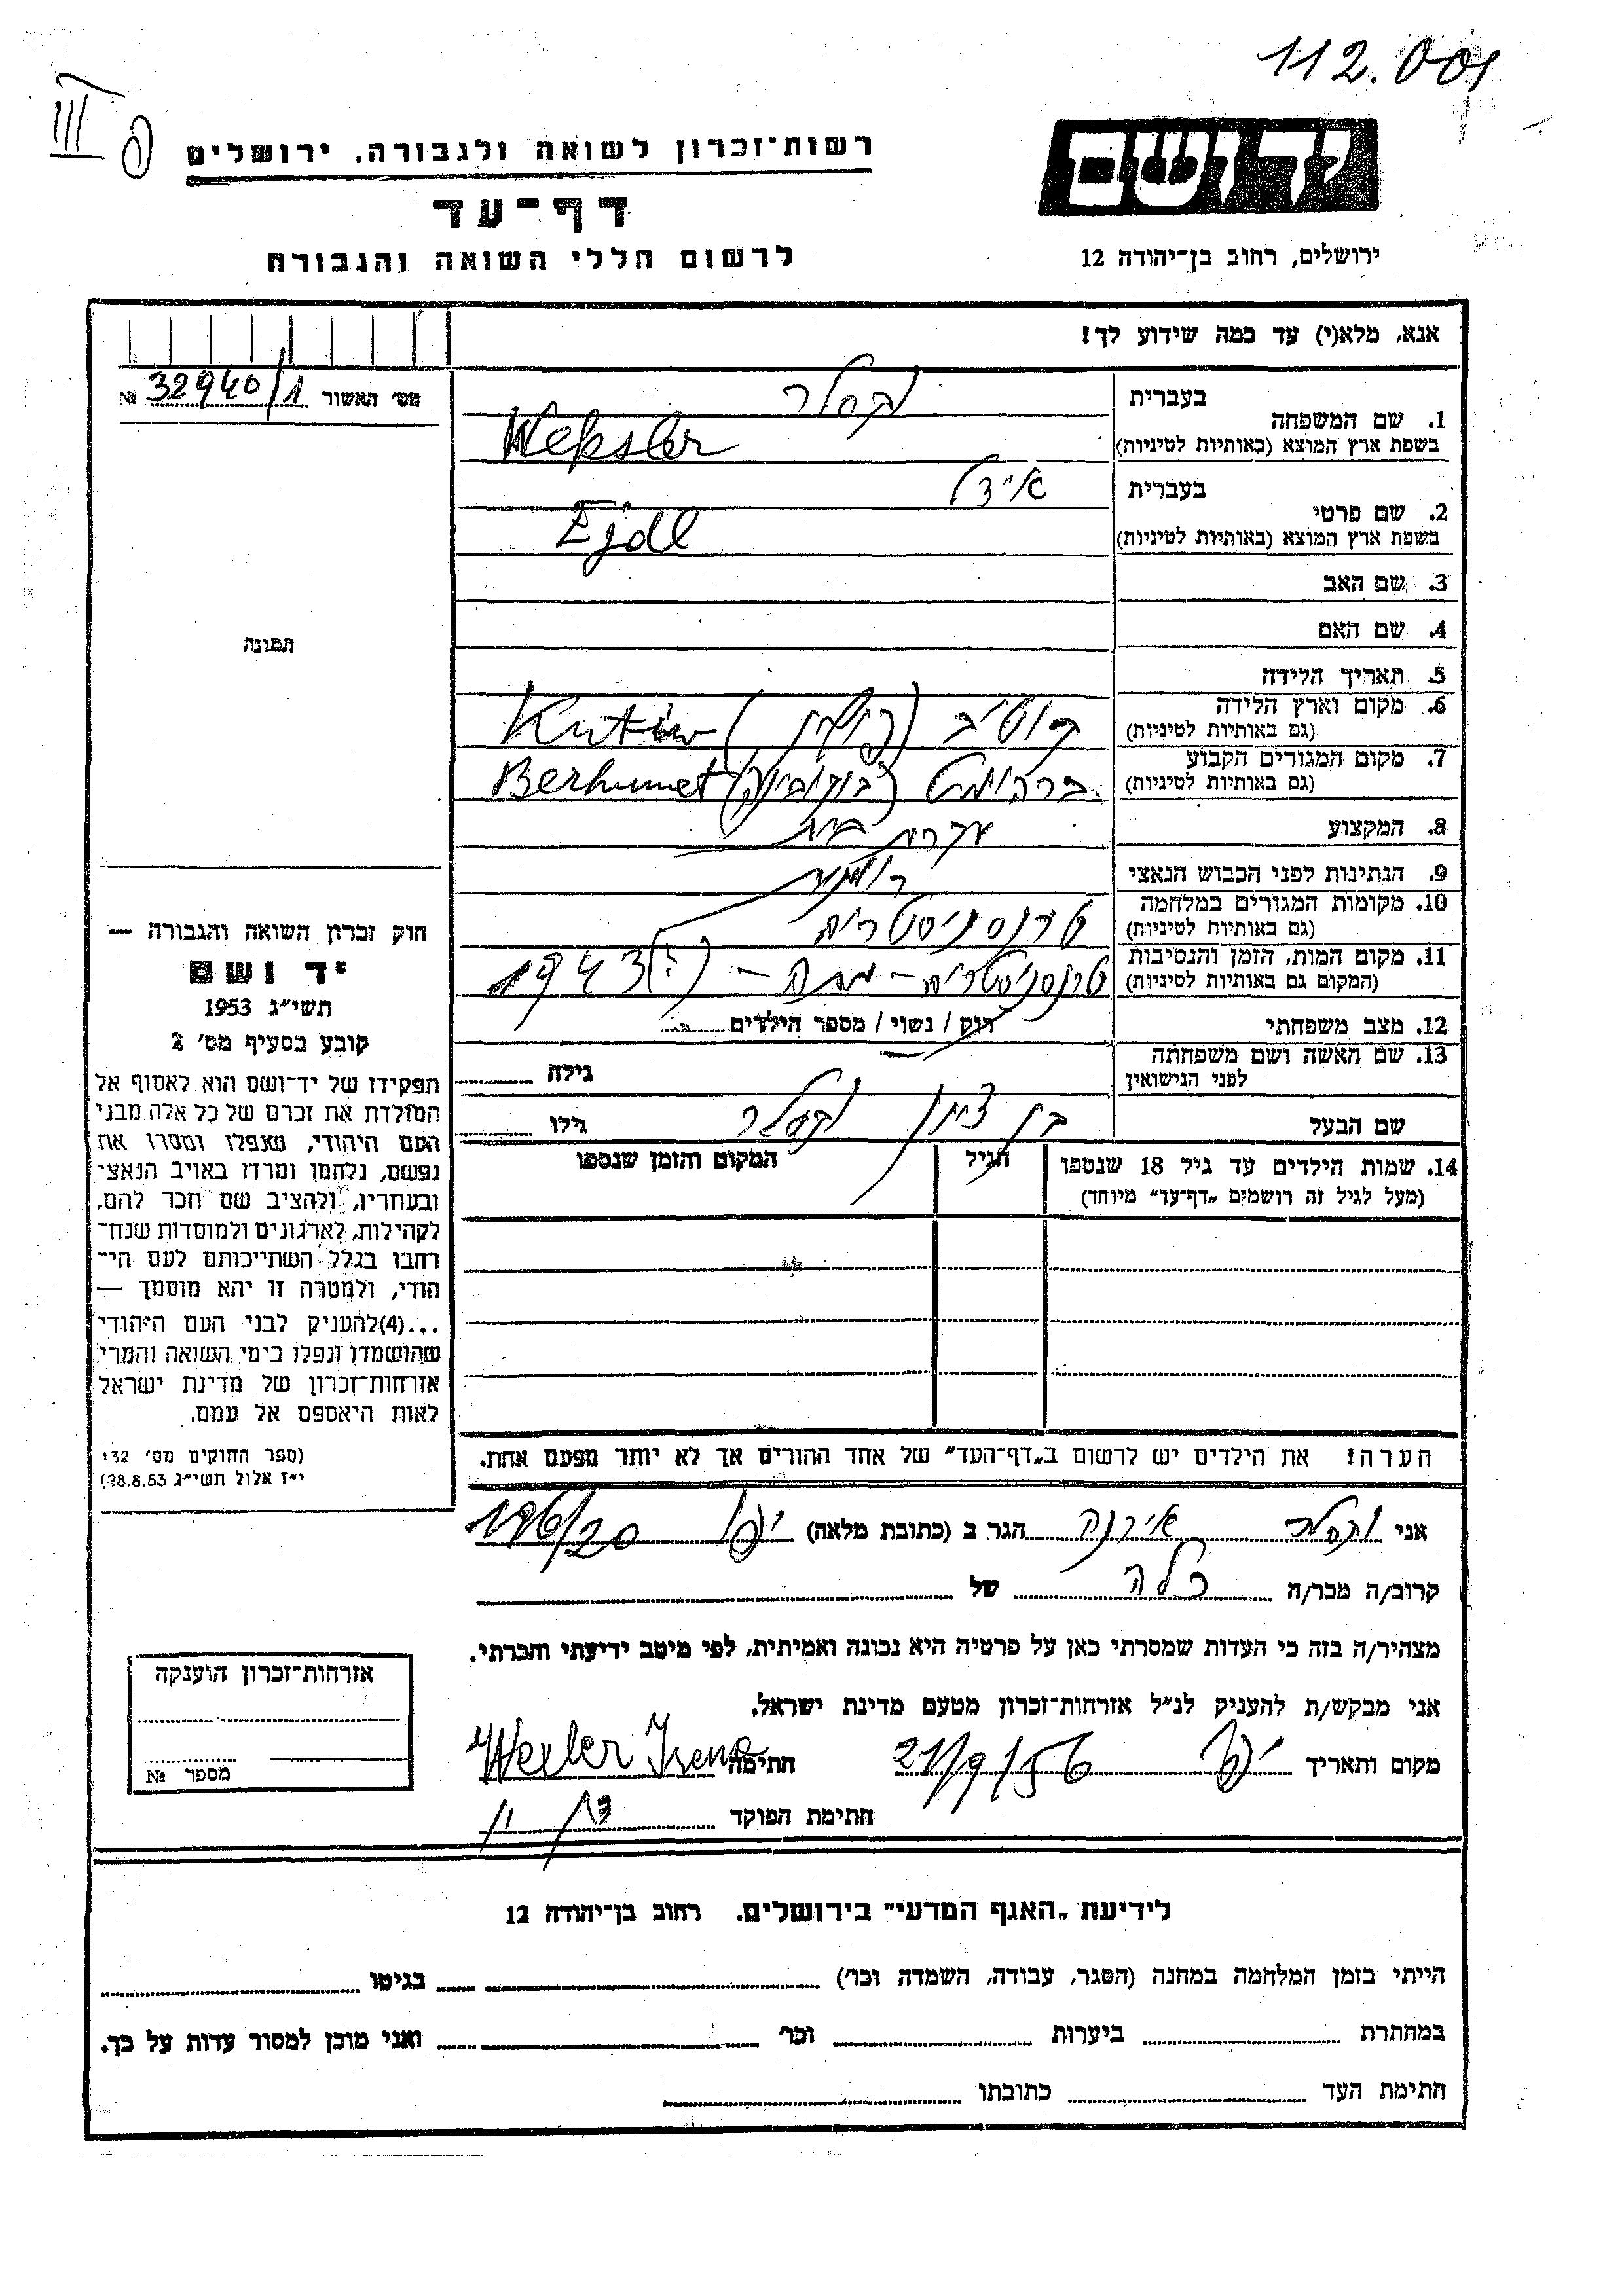 112.001
III
יד ושם
רשות־זכרון לשואה ולגבורה, ירושלים
דף־עד
לרשום חללי השואה והגבורה
ירושלים, רחוב בן־יהודה 12
אנא, מלא(י) עד כמה שידוע לך!
מס׳ האשור 32940/1 №
בעברית וקסלר
1. שם המשפחה
בשפת ארץ המוצא (באותיות לטיניות) Weksler
בעברית אידל
2. שם פרטי
בשפת ארץ המוצא (באותיות לטיניות) Ejdl
3. שם האב
4. שם האם
תמונה
5. תאריך הלידה
6. מקום וארץ הלידה קוטיב (פולין) Kutiw
(גם באותיות לטיניות)
7. מקום המגורים הקבוע ברהומט (בוקובינה) Berhumet
(גם באותיות לטיניות)
8. המקצוע עקרת בית
9. הנתינות לפני הכבוש הנאצי רומנית
10. מקומות המגורים במלחמה טרנסניסטריה
(גם באותיות לטיניות)
11. מקום המות, הזמן והנסיבות טרנסניסטריה – מתה – 1943(?)
(המקום גם באותיות לטיניות)
12. מצב משפחתי רוק / נשוי / מספר הילדים
13. שם האשה ושם משפחתה גילה
לפני הנישואין
שם הבעל בן ציון וקסלר גילו
14. שמות הילדים עד גיל 18 שנספו הגיל המקום והזמן שנספו
(מעל לגיל זה רושמים „דף־עד״ מיוחד)
הערה! את הילדים יש לרשום ב„דף־העד״ של אחד ההורים אך לא יותר מפעם אחת.
חוק זכרון השואה והגבורה —
יד ושם
תשי״ג 1953
קובע בסעיף מס׳ 2
תפקידו של יד־ושם הוא לאסוף אל
המולדת את זכרם של כל אלה מבני
העם היהודי, שנפלו ומסרו את
נפשם, נלחמו ומרדו באויב הנאצי
ובעוזריו, ולהציב שם וזכר להם,
לקהילות, לארגונים ולמוסדות שנח־
רבו בגלל השתייכותם לעם הי־
הודי, ולמטרה זו יהא מוסמך —
...(4)להעניק לבני העם היהודי
שהושמדו ונפלו בימי השואה והמרי
אזרחות־זכרון של מדינת ישראל
לאות היאספם אל עמם.
(ספר החוקים מס׳ 132
י״ז אלול תשי״ג 28.8.53)
אני וקסלר אירנה הגר ב (כתובת מלאה) יפו 196/20
קרוב/ה מכר/ה כלה של
מצהיר/ה בזה כי העדות שמסרתי כאן על פרטיה היא נכונה ואמיתית, לפי מיטב ידיעתי והכרתי.
אני מבקש/ת להעניק לנ״ל אזרחות־זכרון מטעם מדינת ישראל.
מקום ותאריך יפו 21/9/56 חתימה Wexler Irena
חתימת הפוקד
אזרחות־זכרון הוענקה
מספר №
לידיעת „האגף המדעי״ בירושלים. רחוב בן־יהודה 12
הייתי בזמן המלחמה במחנה (הסגר, עבודה, השמדה וכו׳) בגיטו
במחתרת ביערות וכו׳ ואני מוכן למסור עדות על כך.
חתימת העד כתובתו